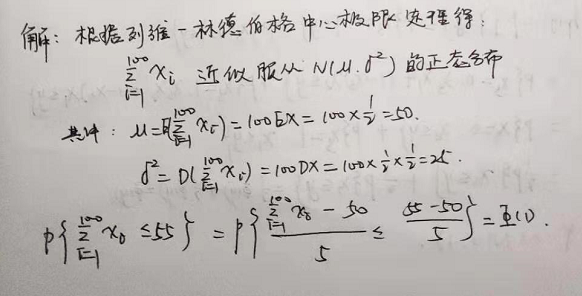 解：根据列维-林德伯格中心极限定理得：
∑_{i=1}^{100} X_i 近似服从 N(μ.σ²) 的正态分布
其中：μ=E(∑_{i=1}^{100} X_i)=100EX=100×1/2=50.
σ²=D(∑_{i=1}^{100} X_i)=100DX=100×1/2×1/2=25.
P{∑_{i=1}^{100} X_i ≤55} = P{(∑_{i=1}^{100} X_i - 50)/5 ≤ (55-50)/5}=Φ(1).